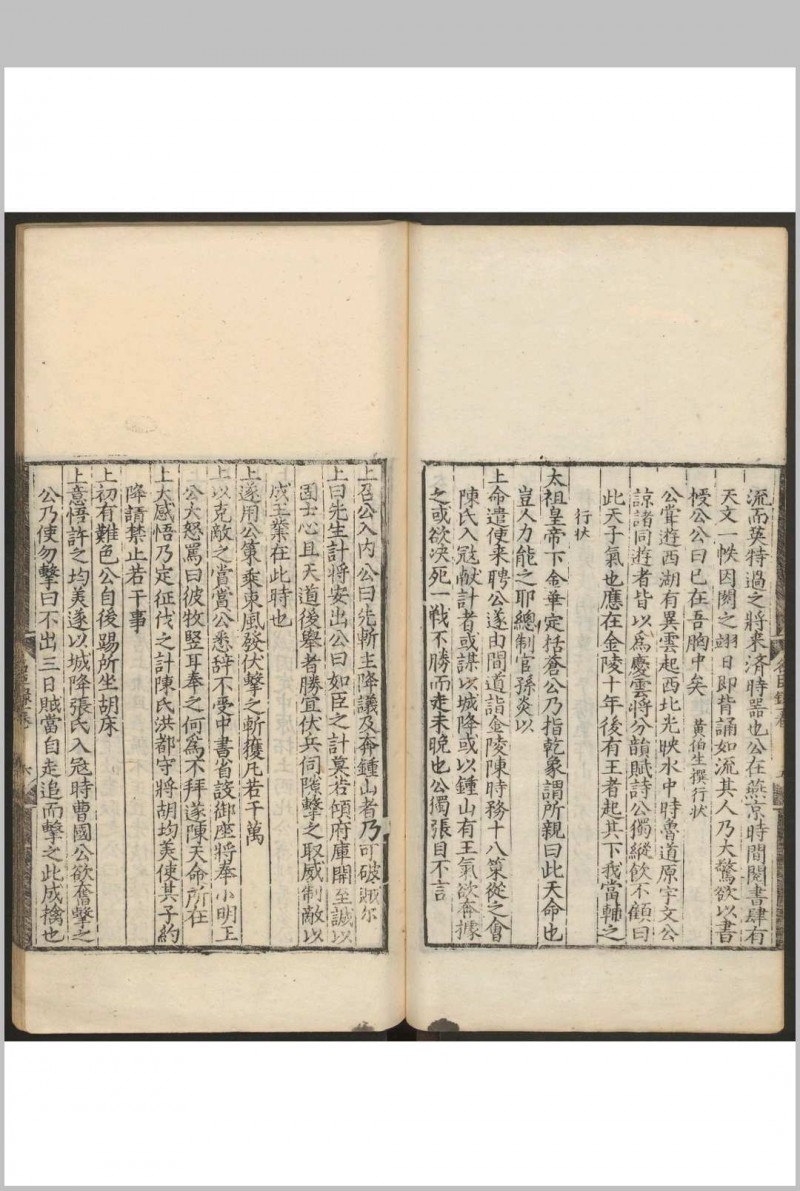 流而英特過之將来济時器也公在燕京時間閱書肆有
天文一帙因閱之翊日即背誦如流其人乃大驚欲以書
授公公曰已在吾胸中矣 黃伯生撰行状
公嘗遊西湖有異雲起西北光映水中時魯道原宇文公
諒諸同遊者皆以爲慶雲將分韻賦詩公獨縱飲不顧曰
此天子氣也應在金陵十年後有王者起其下我當輔之
行状
太祖皇帝下金華定括蒼公乃指乾象謂所親曰此天命也
豈人力能之耶總制官孫炎以
上命遣使来聘公遂由間道詣金陵陳時務十八策從之會
陳氏入寇献計者或謀以城降或以鍾山有王氣欲奔據
之或欲决死一戦不勝而走未晚也公獨張目不言
上召公入内公曰先斬主降議及奔鍾山者乃可破贼尔
上曰先生計將安出公曰如臣之計莫若傾府庫開至誠以
固士心且天道後舉者勝宜伏兵伺隙擊之取威制敵以
成王業在此時也
上遂用公策乘東風發伏擊之斬獲凡若干萬
上以克敵之賞賞公悉辞不受中書省設御座將奉小明王
公大怒罵曰彼牧竪耳奉之何爲不拜遂陳天命所在
上大感悟乃定征伐之計陳氏洪都守將胡均美使其子約
降請禁止若干事
上初有難色公自後踢所坐胡床
上意悟許之均美遂以城降張氏入寇時曹國公欲奮擊之
公乃使勿擊曰不出三日賊當自走追而擊之此成擒也